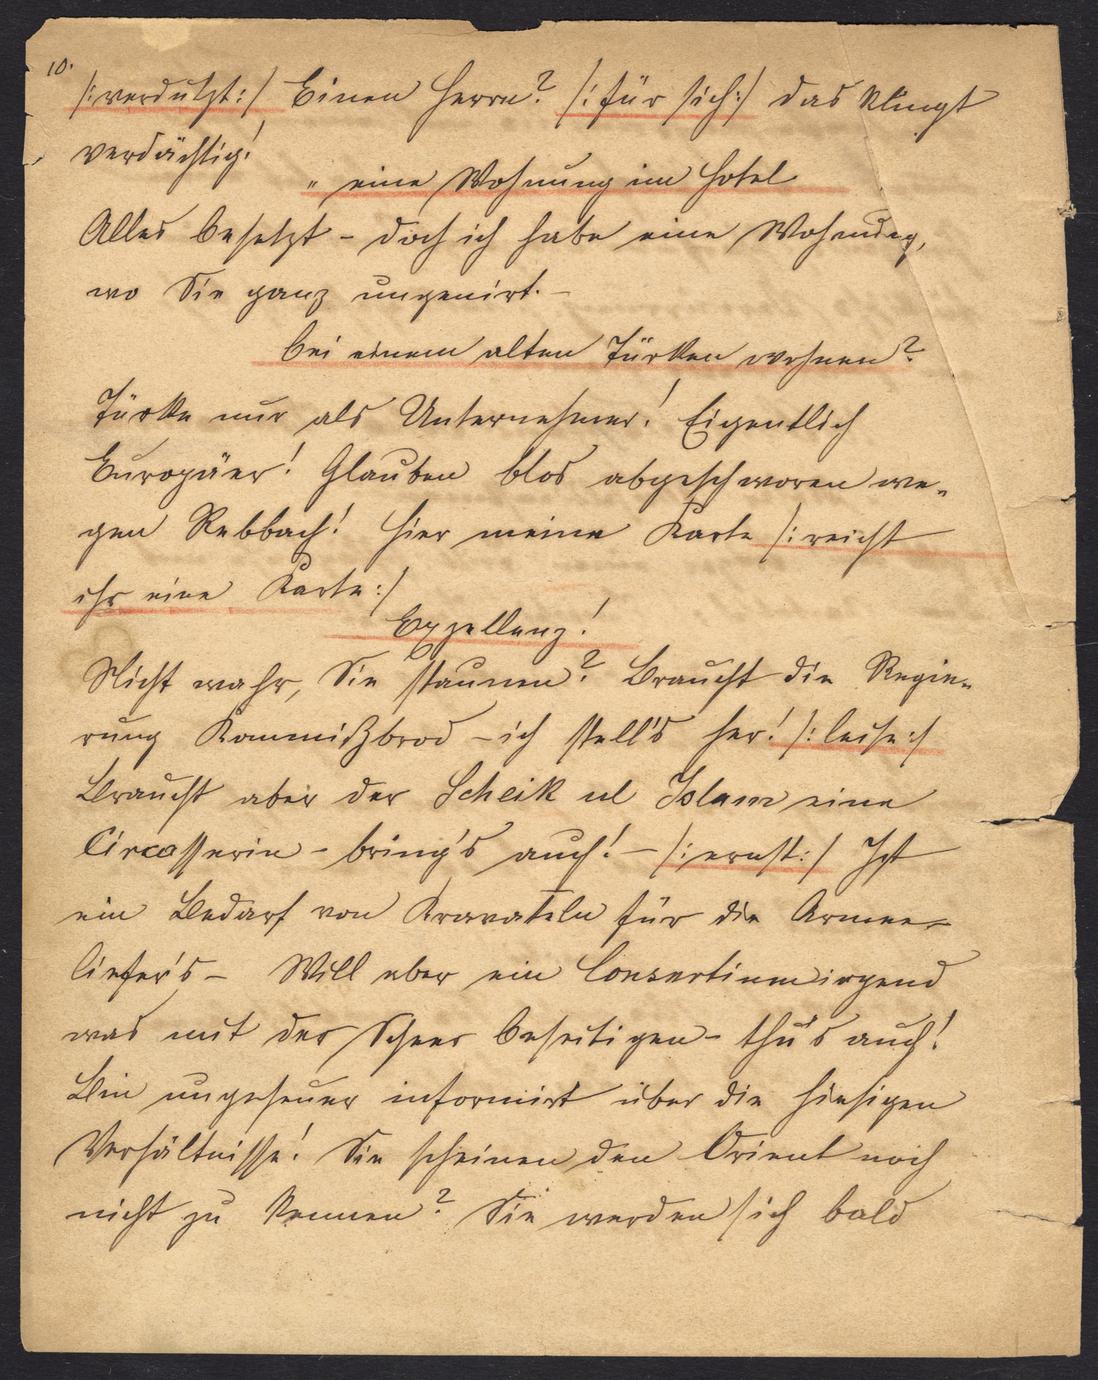 10.
/: verdutzt :/ Einen Herrn? /: für sich :/ das klingt
verdächtig!
" eine Wohnung im Hotel
Alles besetzt – doch ich habe eine Wohnung,
wo Sie ganz ungenirt. –
bei einem alten Türken wohnen?
Türke nur als Unternehmer! Eigentlich
Europäer! Glauben blos abgeschworen we-
gen Rebbach! Hier meine Karte /: reicht
ihr eine Karte :/
Exzellenz!
Nicht wahr, Sie staunen? Braucht die Regie-
rung Kommißbrod – ich stell's her! /: leise :/
Braucht aber der Scheik ul Islam eine
Circasserin – bring's auch! – /: ernst :/ Ist
ein Bedarf von Kravateln für die Armee
liefer's – Will aber ein Consortium irgend
was mit der Scheer beseitigen – thu's auch!
Bin ungeheuer informirt über die hiesigen
Verhältnisse! Sie scheinen den Orient noch
nicht zu kennen? Sie werden sich bald